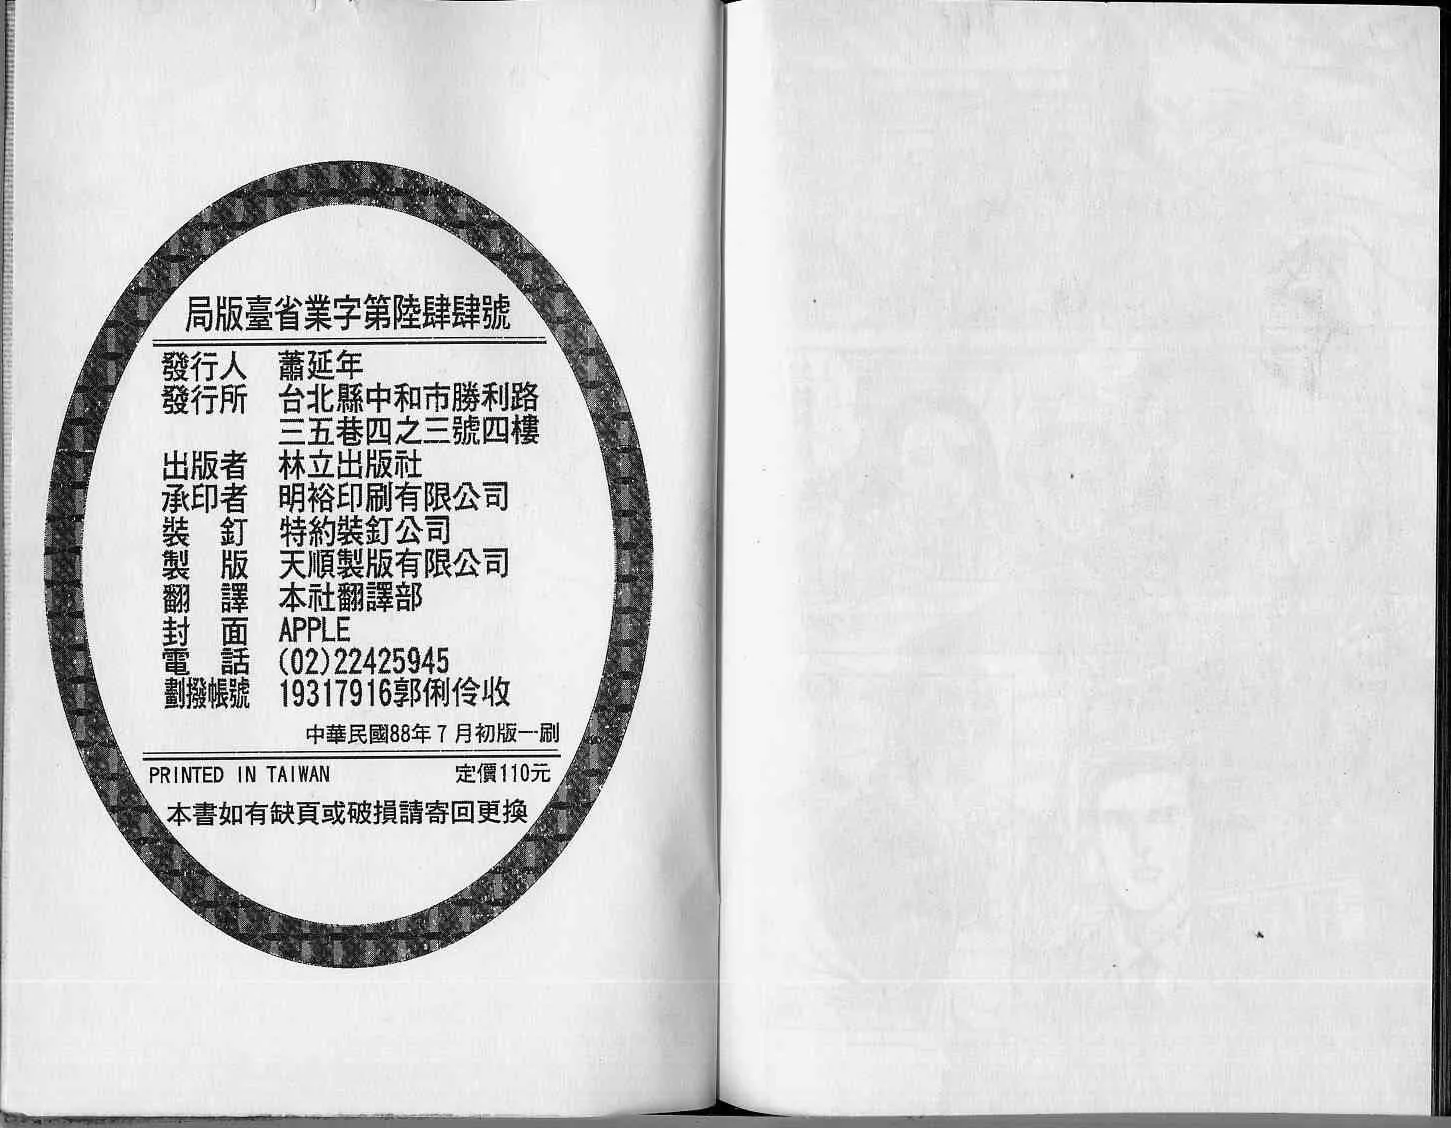 局版臺省業字第陸肆肆號
發行人 蕭延年
發行所 台北縣中和市勝利路
三五巷四之三號四樓
出版者 林立出版社
承印者 明裕印刷有限公司
裝 釘 特約裝釘公司
製 版 天順製版有限公司
翻 譯 本社翻譯部
封 面 APPLE
電 話 (02)22425945
劃撥帳號 19317916郭俐伶收
中華民國88年7月初版一刷
PRINTED IN TAIWAN 定價110元
本書如有缺頁或破損請寄回更換